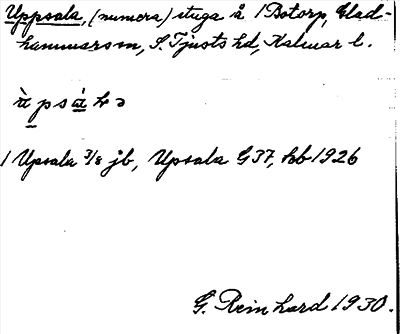 Uppsala, (numera) stuga å 1 Botorp, Glad-
hammars sn, S. Tjusts hd, Kalmar l.
1 Upsala 3/8 jb, Upsala G 37, hb 1926
G. Reinhard 1930.